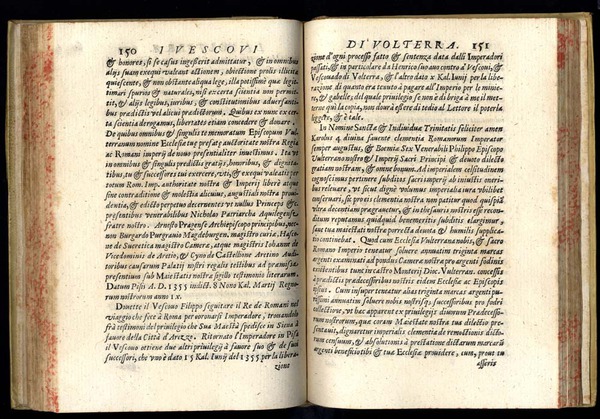 150 I VESCOVI
& honores, si se casus ingesserit admittatur, & in omnibus
alijs suam exequi valeat actionem, obiectione prolis illicitæ
quiescente, & non obstante aliqua lege, illa potissimũ quæ legit
timari spurios & naturales, nisi ex certa scientia non permit
tit, & alijs legibus, iuribus, & constitutionibus aduersanti-
bus prædictis vel alicui prædictorum. Quibus ex nunc ex cer
ta scientia derogamus, libertates etiam concedere & donare.
De quibus omnibus & singulis te memoratum Episcopum Vul-
terranum nomine Ecclesiæ tuæ præfatæ auctoritate nostra Regia
ac Romani imperij de nouo præsentialiter inuestimus. Ita vt
in omnibus & singulis prædictis gratijs, honoribus, & dignita-
tibus, tu & successores tui exercere, vti, & exequi valeatis per
totum Rom. Imp. authoritate nostra & Imperij liberè atque
sine contradictione & molestia alicuius, augustali nostra proui-
dentia, & edicto perpetuo decernentes vt nullus Princeps & c.
præsentibus venerabilibus Nicholao Patriarcha Aquilegense
fratre nostro. Arnesto Pragense Archiepiscopo principibus, nec
non Burgardo Purgrauio Magdeburgen. magistro curiæ, Hasco-
ne de Sueretica magistro Cameræ, atque magistris Iohanne de
Vicedominis de Aretio, & Cyno de Castellione Aretino Audi-
toribus causarum Palatij nostri regalis testibus ad præmissa
præsentium sub Maiestatis nostræ sigillo testimonio literarum.
Datum Pisis A. D. 1355 indict. 8 Nono Kal. Martij Regno-
rum nostrorum anno ix.
Douette il Vescouo Filippo seguitare il Re de Romani nel
viaggio che fece à Roma per coronarsi Imperadore, trouandolo
frà testimoni del priuilegio che Sua Maestà spedisce in Siena à
fauore della Città d'Arezzo. Ritornato l'Imperadore in Pisa
il Vescouo ottiene due altri priuilegij à fauore suo & de suoi
successori, che vno è dato 15 Kal. Iunij del 1355 per la libera-
zione
DI VOLTERRA. 151
zione d'ogni processo fatto & sentenza data dalli Imperadori
passati, & in particolare da Henrico suo auo contro a Vescoui, &
Vescouado di Volterra, & l'altro dato x Kal. Iunij per la libe-
razione di quanto era tenuto à pagare all'Imperio per le minie-
re, & gabelle; del quale priuilegio se non è di briga à me il met-
terne quì la copia, non dourà essere di tedio al Lettore il poterla
leggere, & è tale.
In Nomine Sanctæ & Indiuiduæ Trinitatis feliciter amen
Karolus 4 diuina fauente clementia Romanorum Imperator
semper augustus, & Boemiæ Rex Venerabili Philippo Episcopo
Vulterrano nostro & Imperij Sacri Principi & deuoto dilecto
gratiam nostram, & omne bonum. Ad imperialem celsitudinem
cognoscimus pertinere subditos sacri imperij ab iniustis oneri-
bus releuare, vt sicut dignè volumus imperialia iura vbilibet
conseruari, sic pro eis clementia nostra non patitur quod quispiã
vltra decentiam prægrauetur, & in thesauris nostris esse recon-
ditum reputamus quidquid benemeritis subditis elargimur,
sanè tua maiestati nostræ porrecta deuota & humilis supplica-
tio continebat, Quod cum Ecclesia Vulterrana nobis, & sacro
Romano Imperio teneatur soluere annuatim triginta marcas
argenti examinati ad pondus Cameræ nostræ pro argenti fodinis
existentibus tunc in castro Monterij Dioc. Vulterran. concessis
à prædictis prædecessoribus nostris eidem Ecclesiæ ac Episcopis
eius. Cum insuper teneatur alias triginta marcas argenti pu-
rissimi annuatim soluere nobis nostrisq; successoribus pro fodri
collectione, vt hæc apparent ex priuilegijs diuorum Prædecesso-
rum nostrorum, quæ coram Maiestate nostra tua dilectio præ-
sentauit, dignaretur imperialis clementia de remissione dicto-
rum censuum, & absolutione à præstatione dictarum marcarũ
argenti beneficio tibi & tuæ Ecclesiæ prouidere, cum, prout tu
asseris